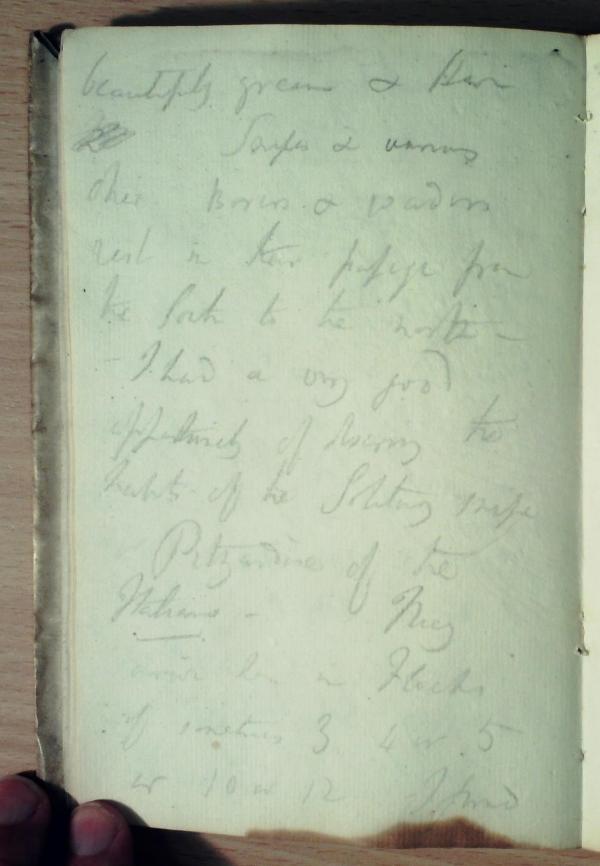 beautifully green & their
Snipes & various
other & waders
rest in their passage from
the South to the north –
– I had a very good
opportunity of observing the
habits of the Solitary snipe
of the
Italians – They
arrive here in Flocks
of sometimes 3 4 or 5
or 10 or 12 I found